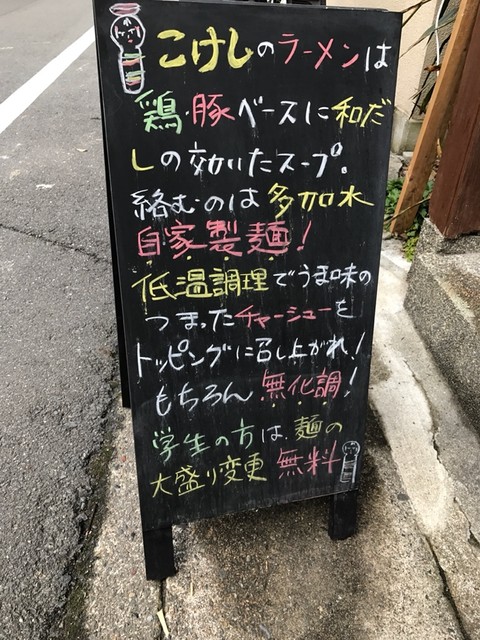 こけしのラーメンは
鶏・豚ベースに和だ
しの効いたスープ。
絡むのは多加水
自家製麺！
低温調理でうま味の
つまったチャーシューを
トッピングに召し上がれ！
もちろん無化調！
学生の方は、麺の
大盛り変更 無料